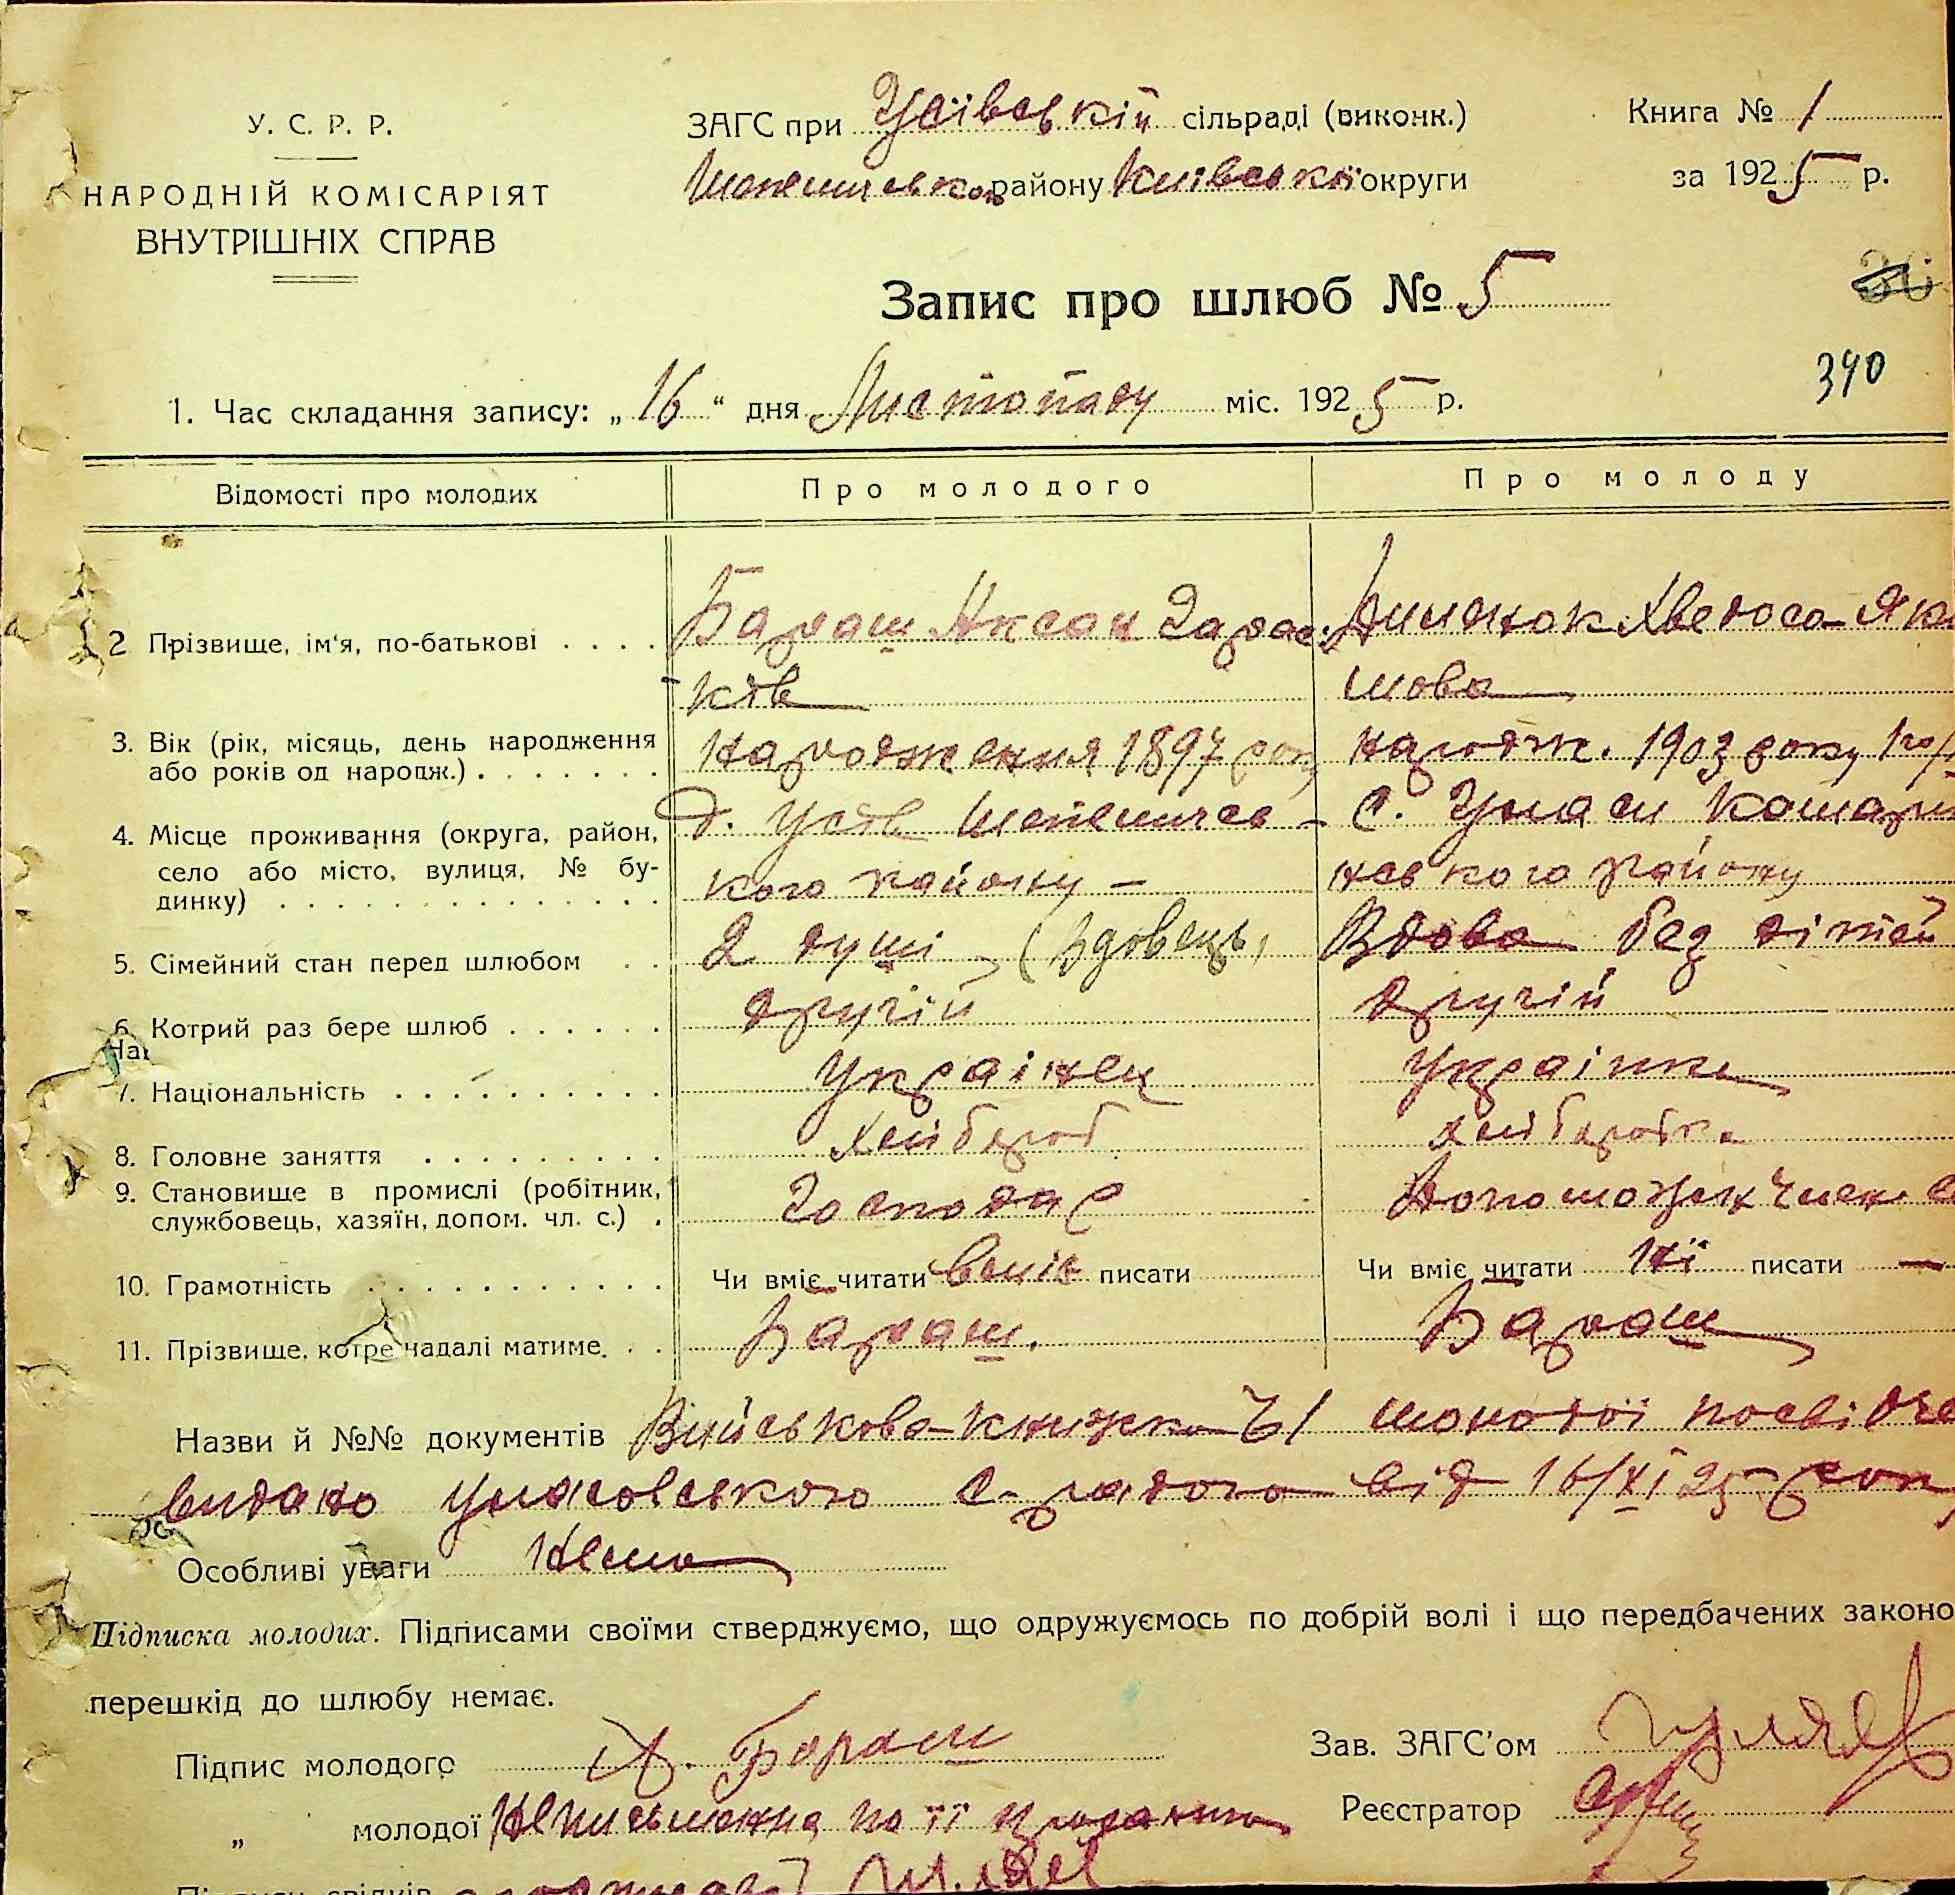 У. С. Р. Р.
НАРОДНІЙ КОМІСАРІЯТ
ВНУТРІШНІХ СПРАВ
ЗАГС при Усівській сільраді (виконк.)
району Київської округи
Книга № 1
за 1925 р.
Запис про шлюб № 5
30
390
1. Час складання запису: „ 16 “ дня Листопаду міс. 1925 р.
Відомості про молодих
Про молодого
Про молоду
2 Прізвище, ім'я, по-батькові . . . .
Бараш Аксон
ків
Хведоса Яки
мова
3. Вік (рік, місяць, день народження
або років од народж.) . . . . . . .
народження 1897 року
народж. 1903 року
4. Місце проживання (округа, район,
село або місто, вулиця, № бу-
динку) . . . . . . . . . . . . . . .
д. Усів Шепеличев-
кого району —
с. Уласи Кошари
нев кого району
5. Сімейний стан перед шлюбом . .
2 душі (Вдовець)
Вдова без дітей
6. Котрий раз бере шлюб . . . . . .
другій
другій
На
7. Національність . . . . . . . . . .
Українец
Українка
8. Головне заняття . . . . . . . . .
Хлібороб
хлібаробка
9. Становище в промислі (робітник,
службовець, хазяїн, допом. чл. с.) .
Господар
Допоможен член с
10. Грамотність . . . . . . . . . . .
Чи вміє читати вміє писати
Чи вміє читати Ні писати —
11. Прізвище, котре надалі матиме. . .
Бараш.
Бараш
Назви й №№ документів Військова книжка молодої посвідче
видано Уласовського с-радою від 16/XI 25 року
Особливі уваги Нема
Підписка молодих. Підписами своїми стверджуємо, що одружуємось по добрій волі і що передбачених законо
перешкід до шлюбу немає.
Підпис молодого А. Бараш
Зав. ЗАГС'ом
„ молодої Неписьменна по її проханню
Реєстратор
Підписи свідків